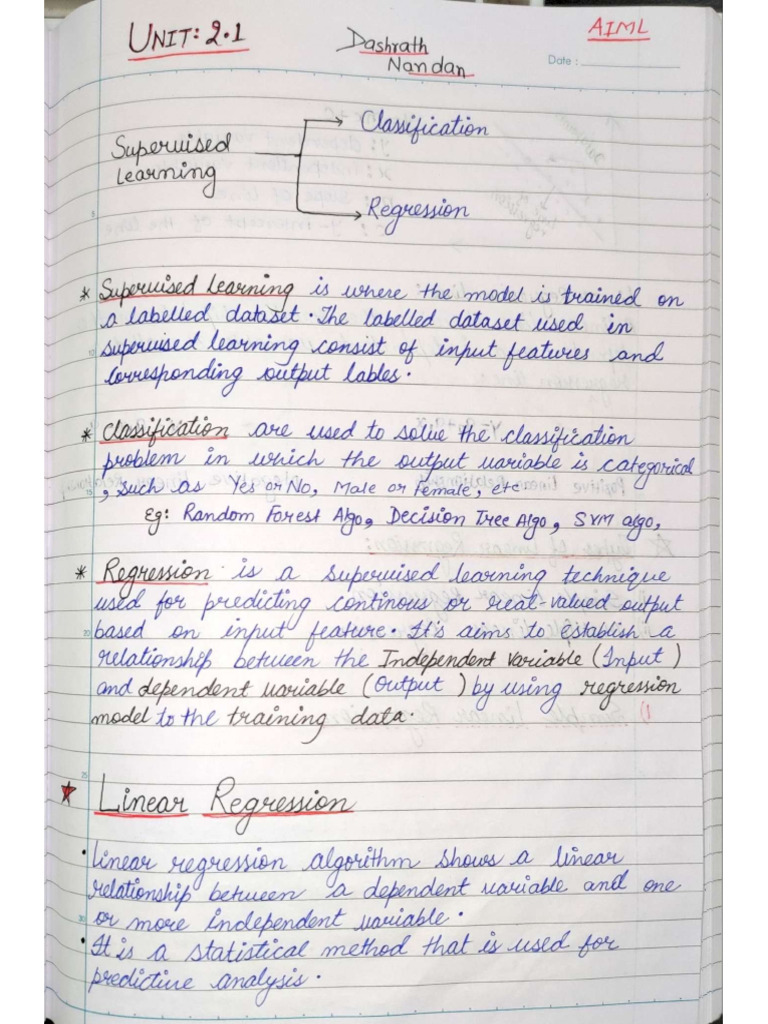 UNIT: 2.1
Dashrath
Nandan
AIML
Date :
Supervised
Learning
Classification
Regression
* Supervised Learning is where the model is trained on
a labelled dataset. The labelled dataset used in
supervised learning consist of input features and
corresponding output lables.
* Classification are used to solve the classification
problem in which the output variable is categorical
, such as Yes or No, Male or Female, etc.
Eg: Random Forest Algo, Decision Tree Algo, SVM algo,
* Regression is a supervised learning technique
used for predicting continous or real-valued output
based on input feature. It's aims to establish a
relationship between the Independent variable (Input)
and dependent variable (Output) by using regression
model to the training data.
Linear Regression
• Linear regression algorithm shows a linear
relationship between a dependent variable and one
or more independent variable.
• It is a statistical method that is used for
predictive analysis.